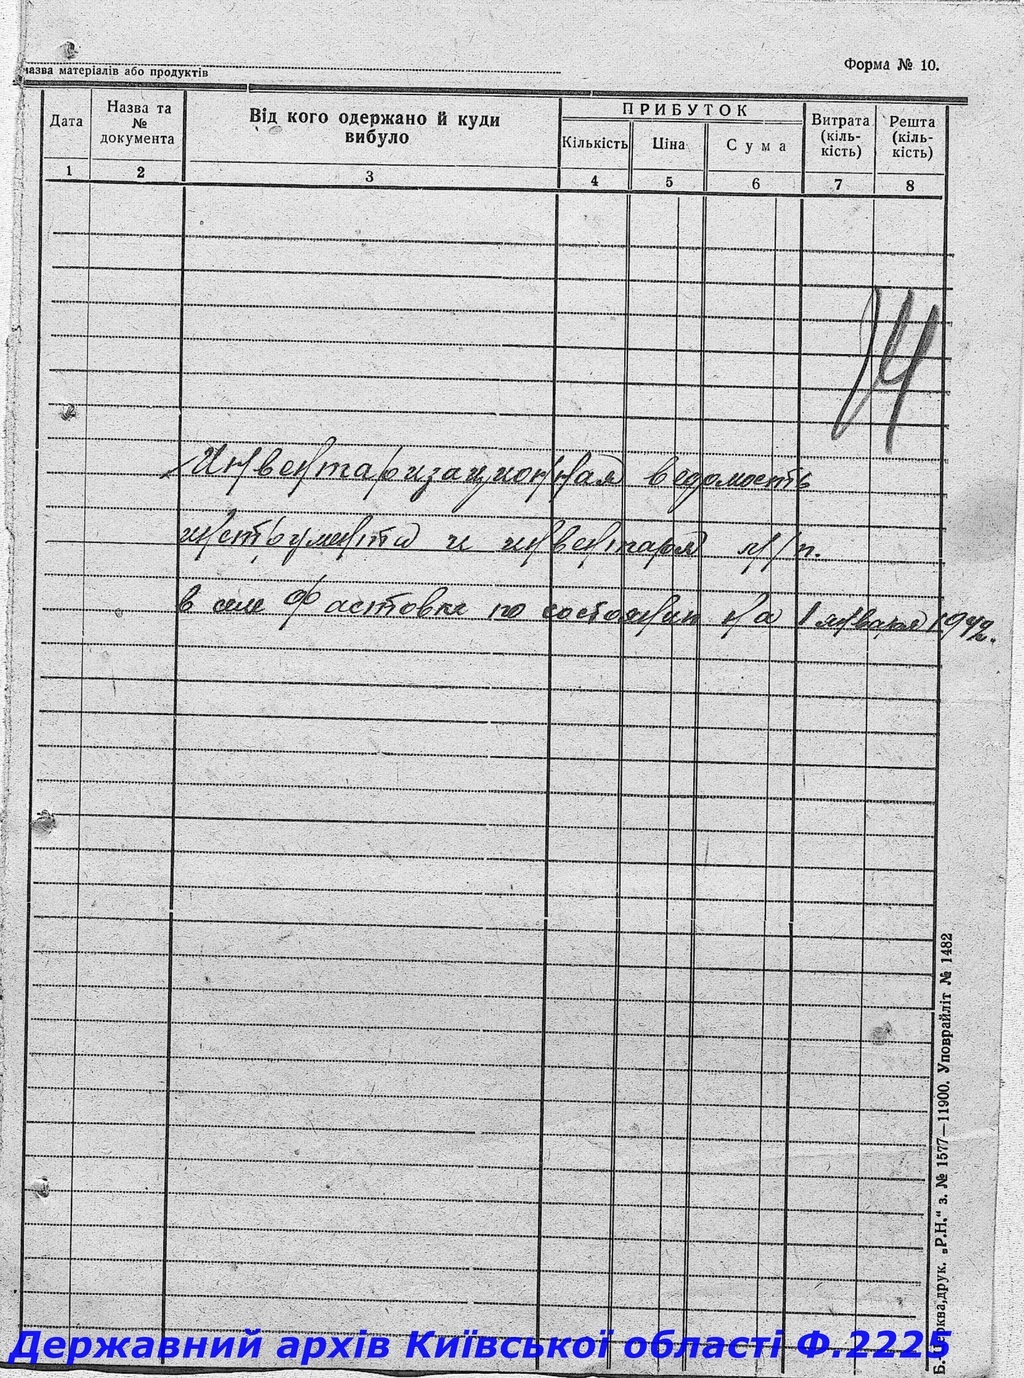 назва матеріалів або продуктів
Форма № 10.
Дата
Назва та № документа
Від кого одержано й куди вибуло
ПРИБУТОК
Кількість
Ціна
Сума
Витрата (кіль-кість)
Решта (кіль-кість)
1 2 3 4 5 6 7 8
Инвентаризационная ведомость
инструмента и инвентаря
в селе Фастовке по состоянию на 1 января 1942.
Б.-Церква, друк. „Р.Н.“ з. № 1577—11900. Уповрайліт № 1482
Державний архів Київської області Ф.2225